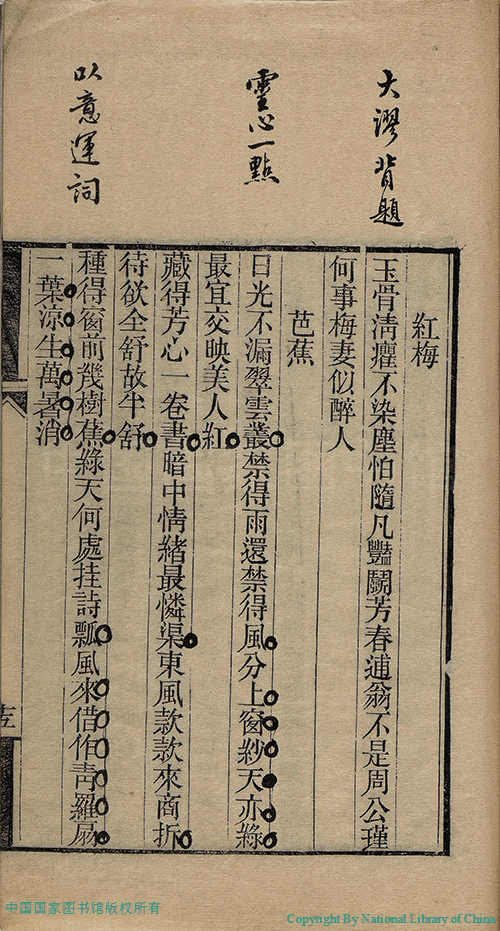 大謬背題
靈心一點
以意運詞
紅梅
玉骨淸癯不染塵怕隨凡豔鬬芳春逋翁不是周公瑾
何事梅妻似醉人
芭蕉
日光不漏翠雲叢禁得雨還禁得風分上窗紗天亦綠
最宜交映美人紅
藏得芳心一卷書暗中情緖最憐渠東風款款來商折
待欲全舒故半舒
種得窗前幾樹蕉綠天何處挂詩瓢風來借作靑羅扇
一葉涼生萬暑消
中国国家图书馆版权所有
Copyright By National Library of China